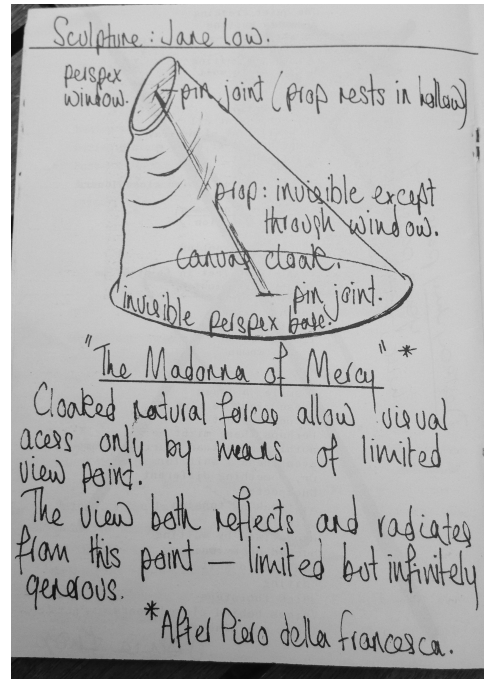 Sculpture: Jane Low.
perspex
window.
pin joint (prop rests in hollow)
prop: invisible except
through window.
canvas cloak.
pin joint.
invisible perspex base.
"The Madonna of Mercy" *
Cloaked natural forces allow visual
acess only by means of limited
view point.
The view both reflects and radiates
from this point – limited but infinitely
generous.
*After Piero della Francesca.